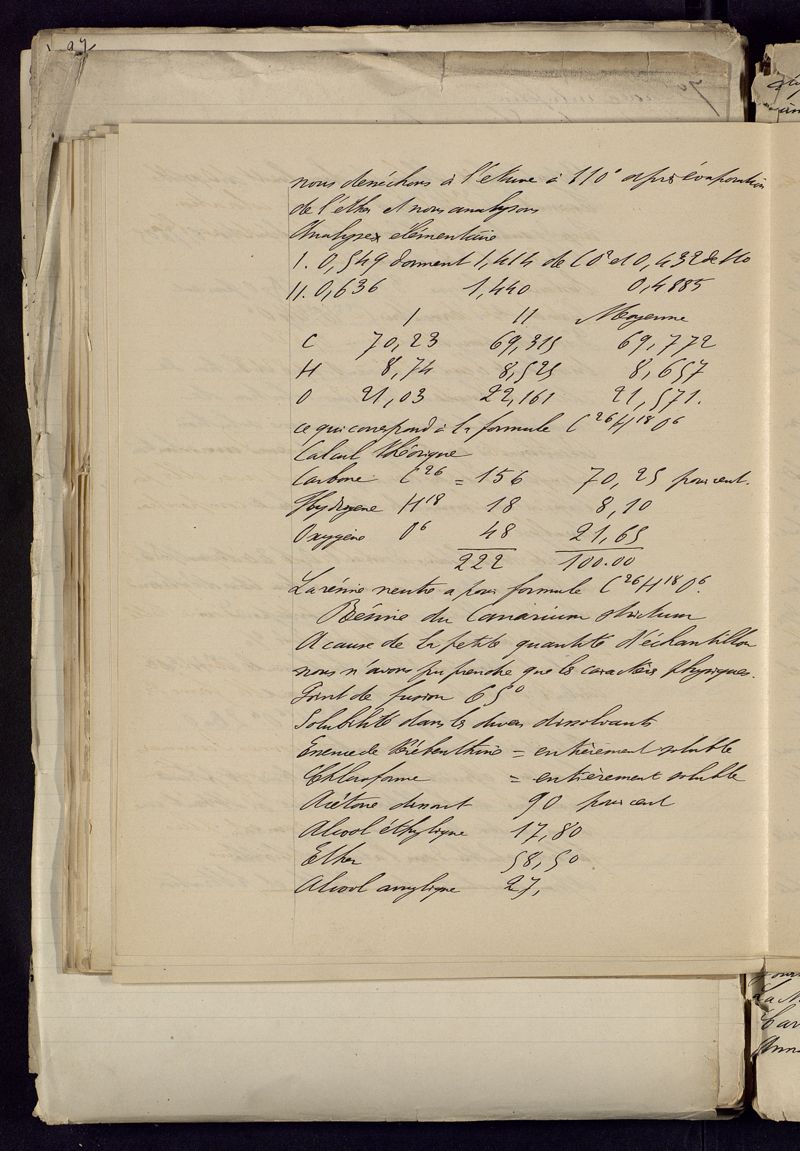 97
nous desséchons à l'étuve à 110° après évaporation
de l'éther et nous analysons
Analyses élémentaire
I. 0,549 donnent 1,414 de CO² et 0,432 de Ho
II. 0,636 1,440 0,4885
I II Moyenne
C 70,23 69,315 69,772
H 8,74 8,525 8,657
O 21,03 22,161 21,571.
ce qui correspond à la formule C²⁶H¹⁸O⁶
Calcul théorique
Carbone C²⁶ = 156 70,25 pour cent.
Hydrogene H¹⁸ 18 8,10
Oxygène O⁶ 48 21,65
222 100.00
La résine neutre a pour formule C²⁶H¹⁸O⁶.
Résine du Canarium strictum
A cause de la petite quantité d'échantillon
nous n'avons pu prendre que les caractères physiques.
Point de fusion 65°
Solubilité dans les divers dissolvants
Essence de Térébenthine = entièrement soluble
Chloroforme = entièrement soluble
Acétone dissout 90 pour cent
Alcool éthylique 17,80
Ether 58,50
Alcool amylique 27,
La